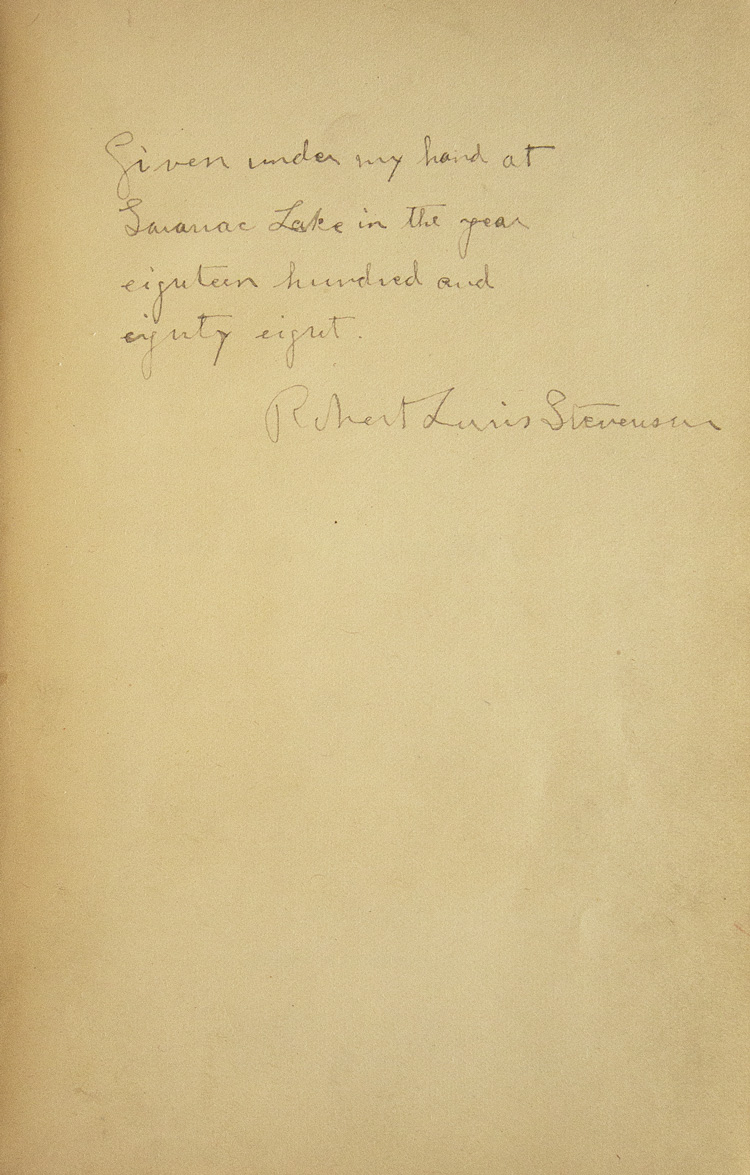 Given under my hand at
Saranac Lake in the year
eighteen hundred and
eighty eight.
Robert Louis Stevenson